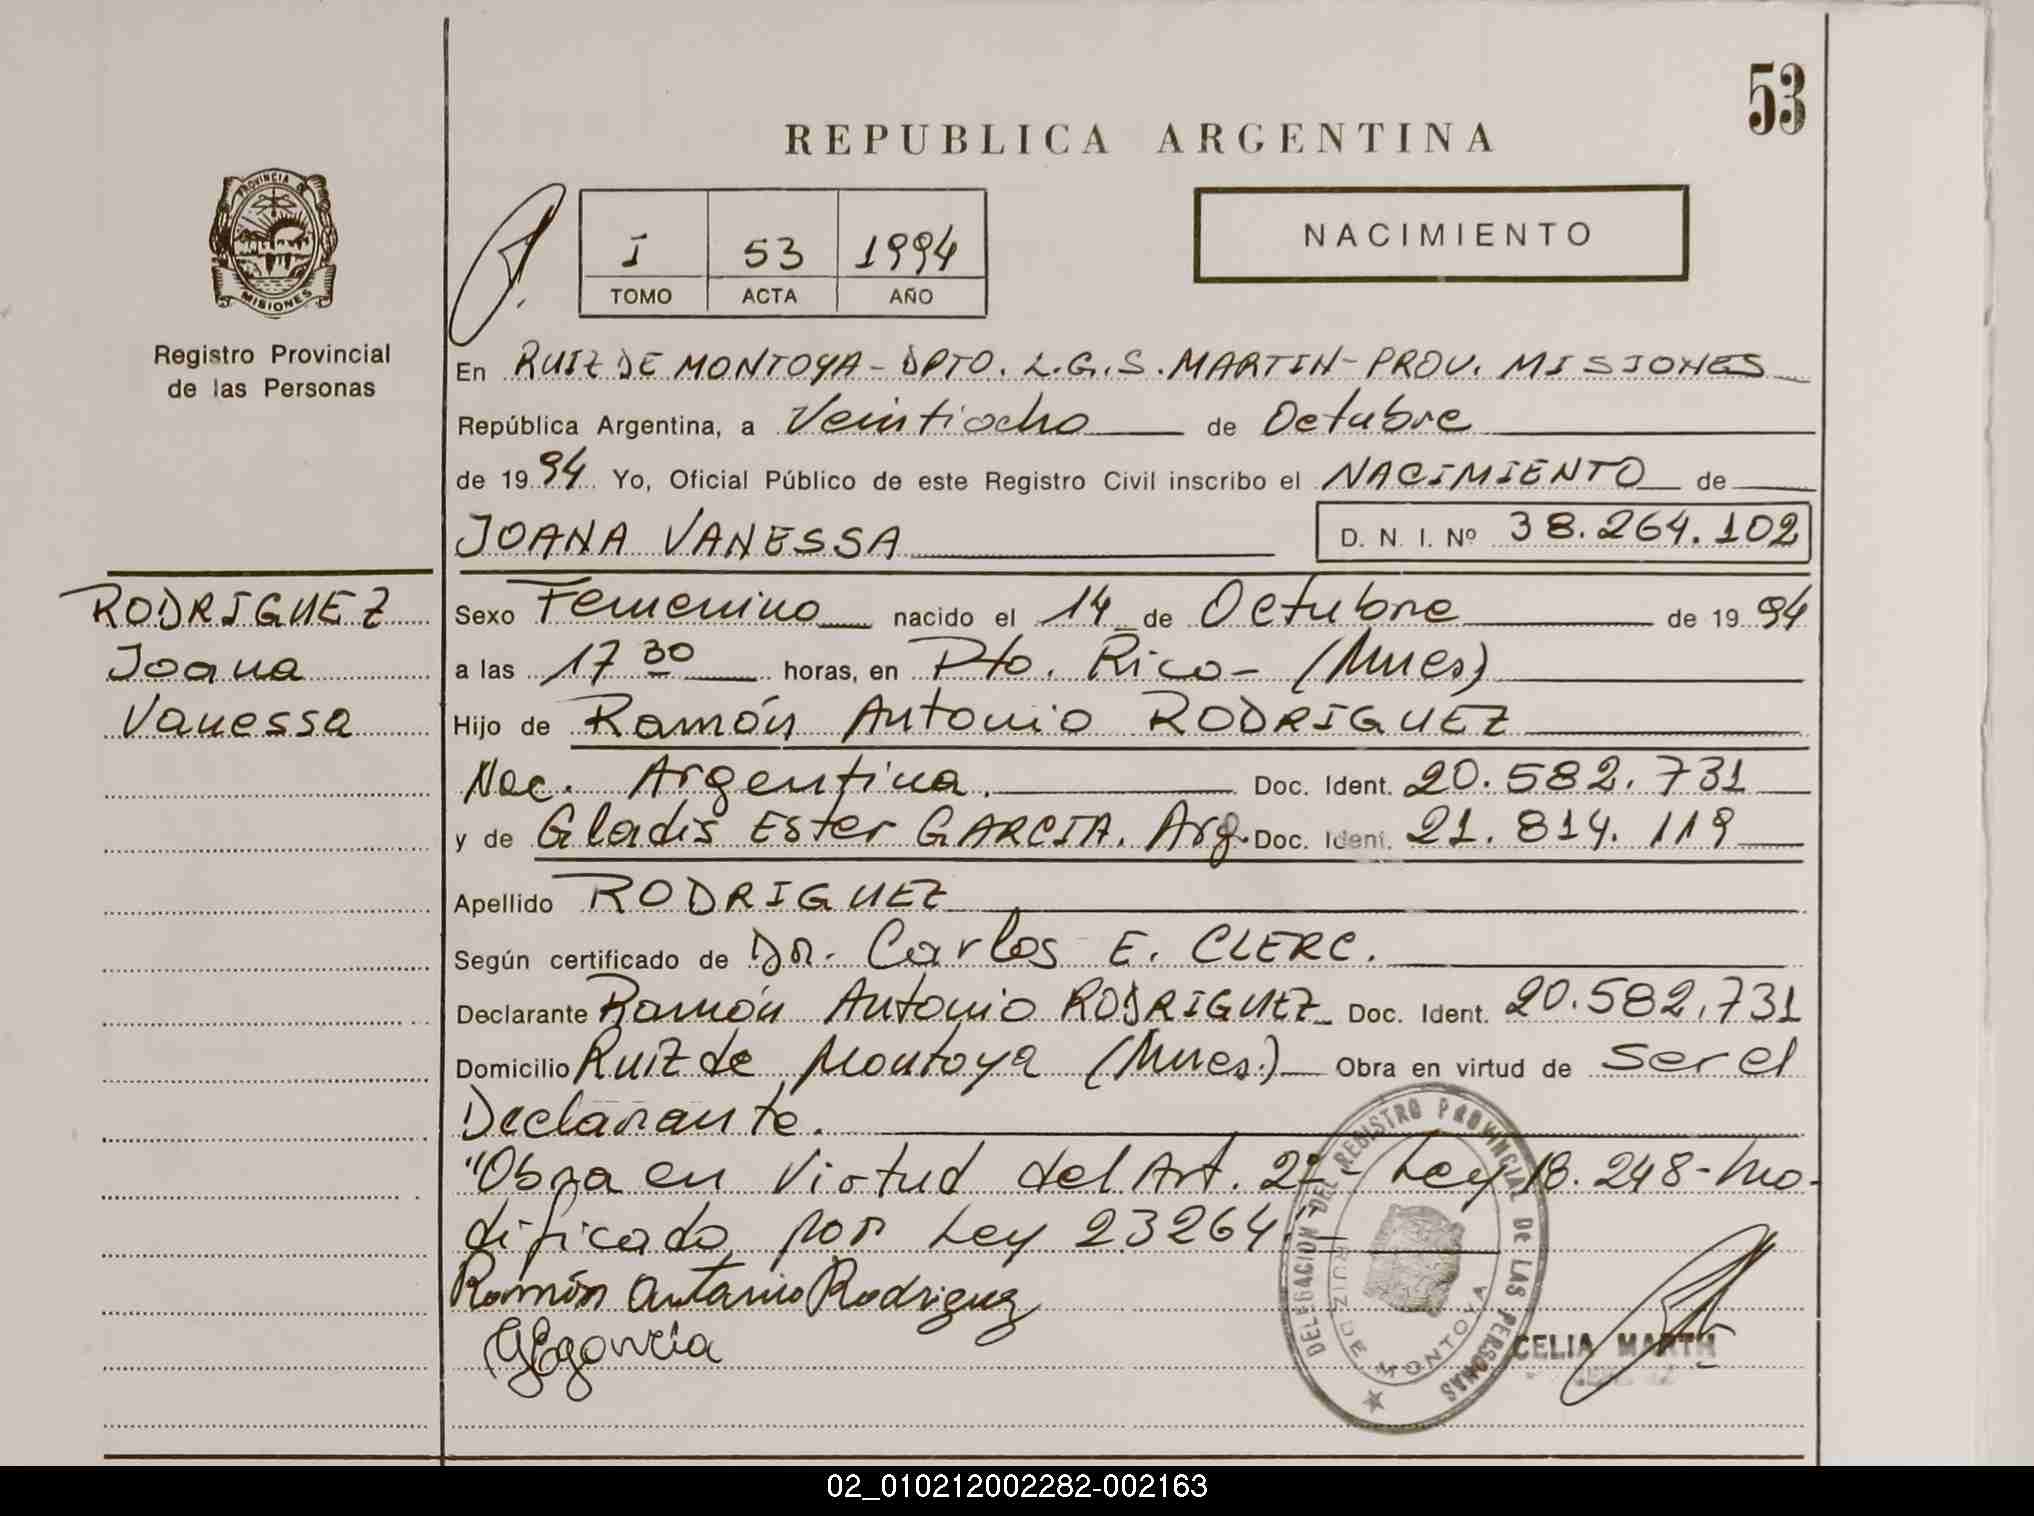 53
REPUBLICA ARGENTINA
PROVINCIA DE
MISIONES
Registro Provincial
de las Personas
I 53 1994
TOMO ACTA AÑO
NACIMIENTO
En RUIZ DE MONTOYA - DPTO. L.G.S. MARTIN - PROV. MISIONES
República Argentina, a Veintiocho de Octubre
de 1994 Yo, Oficial Público de este Registro Civil inscribo el NACIMIENTO de
JOANA VANESSA D. N. I. Nº 38.264.102
RODRIGUEZ
Joana
Vanessa
Sexo Femenino nacido el 14 de Octubre de 1994
a las 17 30 horas, en Pto. Rico - (Mnes)
Hijo de Ramón Antonio RODRIGUEZ
Nac. Argentina. Doc. Ident. 20.582.731
y de Gladis Ester GARCIA. Arg. Doc. Ident. 21.814.119
Apellido RODRIGUEZ
Según certificado de Dr. Carlos E. CLERC.
Declarante Ramón Antonio RODRIGUEZ Doc. Ident. 20.582.731
Domicilio Ruiz de Montoya (Mnes.) Obra en virtud de ser el
Declarante.
"Obra en Virtud del Art. 2º - Ley 18.248 - mo-
dificado por Ley 23264"
Ramón Antonio Rodriguez
GEgarcia
DELEGACION DEL REGISTRO PROVINCIAL DE LAS PERSONAS
RUIZ DE MONTOYA
CELIA MARTH
02_010212002282-002163